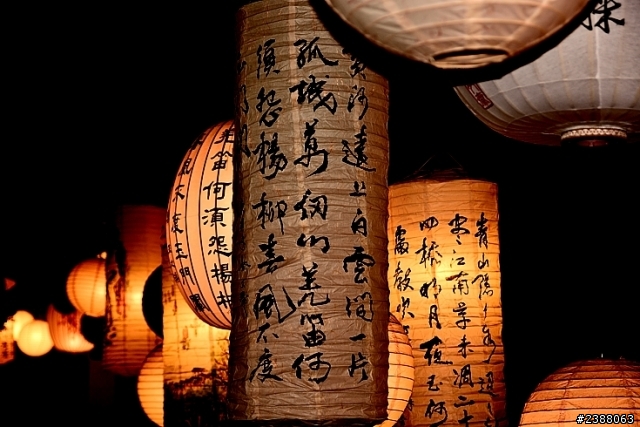 黃河遠上白雲間一片
孤城萬仞山羌笛何
須怨楊柳春風不度
羌笛何須怨楊柳
風不度玉門
青山隱々水迢々
江南草未凋二十
四橋明月夜玉人何
處教吹
#2388063